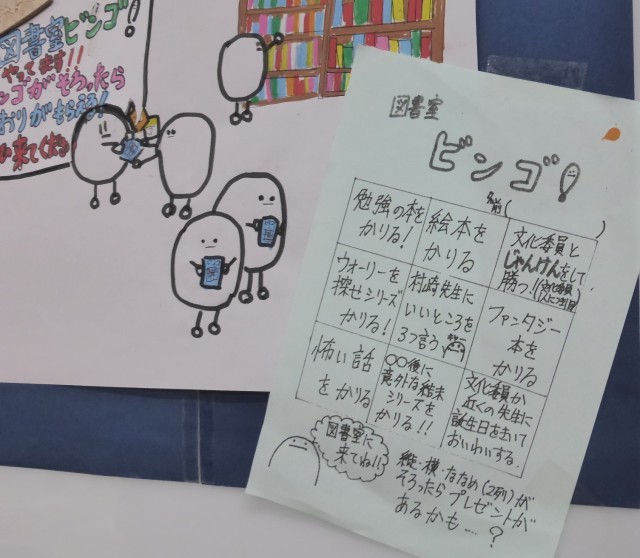 図書室ビンゴ!
やってます!!
ンゴがそろったら
おりがもらえる!
来てくださ
図書室
ビンゴ!
名前( )
勉強の本を
かりる!
絵本を
かりる
文化委員と
じゃんけんをして
勝つ!(文化委員
1人につき1回)
ウォーリーを
探せシリーズ
かりる!
村崎先生に
いいところを
3つ言う
ファンタジー
本を
かりる
怖い話
をかりる
〇〇後に
意外な結末
シリーズを
かりる!!
文化委員か
近くの先生に
誕生日をきいて
おいわいする.
図書室に
来てね!!
縦・横・ななめ(2列)が
そろったらプレゼントが
あるかも….?